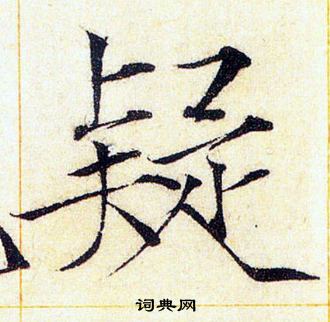 疑
词典网